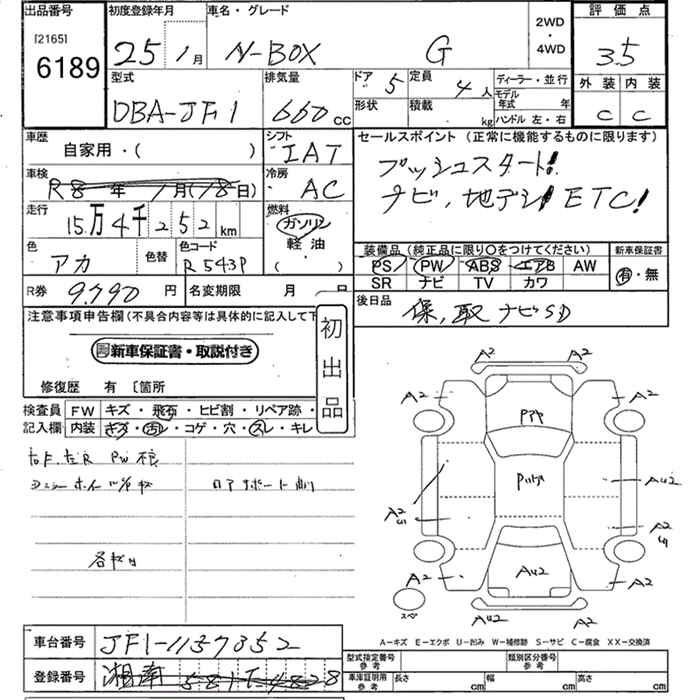 出品番号 初度登録年月 車名・グレード 2WD・4WD 評価点
[2165]
6189 25 1月 N-BOX G 3.5
型式 排気量 ドア 5 定員 4人 ディーラー・並行 外装 内装
DBA-JF1 660cc 形状 積載 kg モデル年式 年 C C
ハンドル 左・右
車歴 シフト セールスポイント (正常に機能するものに限ります)
自家用・( ) IAT プッシュスタート!
車検 冷房 ナビ、地デジ ETC!
R8年 1月(18日) AC
走行 燃料
15万4千252km ガソリン
軽油
( )
色 色替 色コード 装備品 (純正品に限り○をつけてください) 新車保証書
アカ R543P PS PW ABS エアB AW 有・無
SR ナビ TV カワ
R券 9,790円 名変期限 月 日 後日品
保、取 ナビSD
注意事項申告欄(不具合内容等は具体的に記入して下
新車保証書・取説付き
初出品
修復歴 有 〔箇所
検査員 FW キズ・飛石・ヒビ割・リペア跡・
記入欄 内装 キズ・汚レ・コゲ・穴・スレ・キレ
A2 A2
A2 A2
PPP
AU2
A2
A2
A2 A2
AU2
AU2 A2
スペ
A-キズ E-エクボ U-凹み W-補修跡 S-サビ C-腐食 XX-交換済
車台番号 JF1-1137352
登録番号 湘南
型式指定番号 参考 類別区分番号 参考
車庫証明用 参考 長さ cm 幅 cm 高さ cm